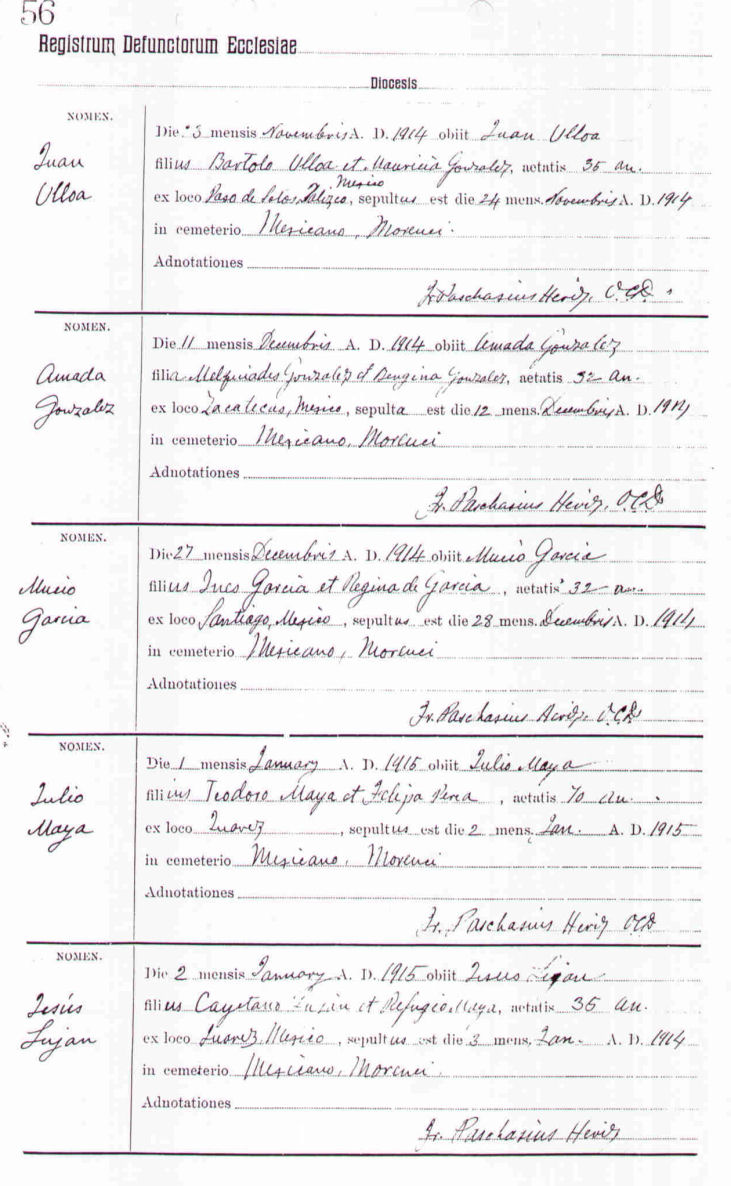 56
Registrum Defunctorum Ecclesiae
Diocesis
NOMEN.
Juan
Ulloa
Die 3 mensis Novembris A. D. 1914 obiit Juan Ulloa
filius Bartolo Ulloa et Mauricia Gonzalez, aetatis 35 an.
Mexico
ex loco Paso de Sotos, Jalizco, sepultus est die 24 mens. Novembris A. D. 1914
in cemeterio Mexicano, Morenci.
Adnotationes
Fr. Paschasius Heriz, O.C.D.
NOMEN.
Amada
Gonzalez
Die 11 mensis Decembris A. D. 1914 obiit Amada Gonzalez
filia Gonzalez et Gonzalez, aetatis 32 an.
ex loco Zacatecas, Mexico, sepulta est die 12 mens. Decembris A. D. 1914
in cemeterio Mexicano, Morenci
Adnotationes
Fr. Paschasius Heriz, O.C.D.
NOMEN.
Mucio
Garcia
Die 27 mensis Decembris A. D. 1914 obiit Mucio Garcia
filius Ines Garcia et Regina de Garcia, aetatis 32 an.
ex loco Santiago, Mexico, sepultus est die 28 mens. Decembris A. D. 1914
in cemeterio Mexicano, Morenci
Adnotationes
Fr. Paschasius Heriz, O.C.D.
NOMEN.
Julio
Maya
Die 1 mensis January A. D. 1915 obiit Julio Maya
filius Teodoro Maya et Felipa Perea, aetatis 70 an.
ex loco Juarez, sepultus est die 2 mens. Jan. A. D. 1915
in cemeterio Mexicano, Morenci
Adnotationes
Fr. Paschasius Heriz OCD
NOMEN.
Jesús
Lujan
Die 2 mensis January A. D. 1915 obiit Jesus Lujan
filius Cayetano Lujan et Refugio Maya, aetatis 35 an.
ex loco Juarez, Mexico, sepultus est die 3 mens. Jan. A. D. 1914
in cemeterio Mexicano, Morenci.
Adnotationes
Fr. Paschasius Heriz